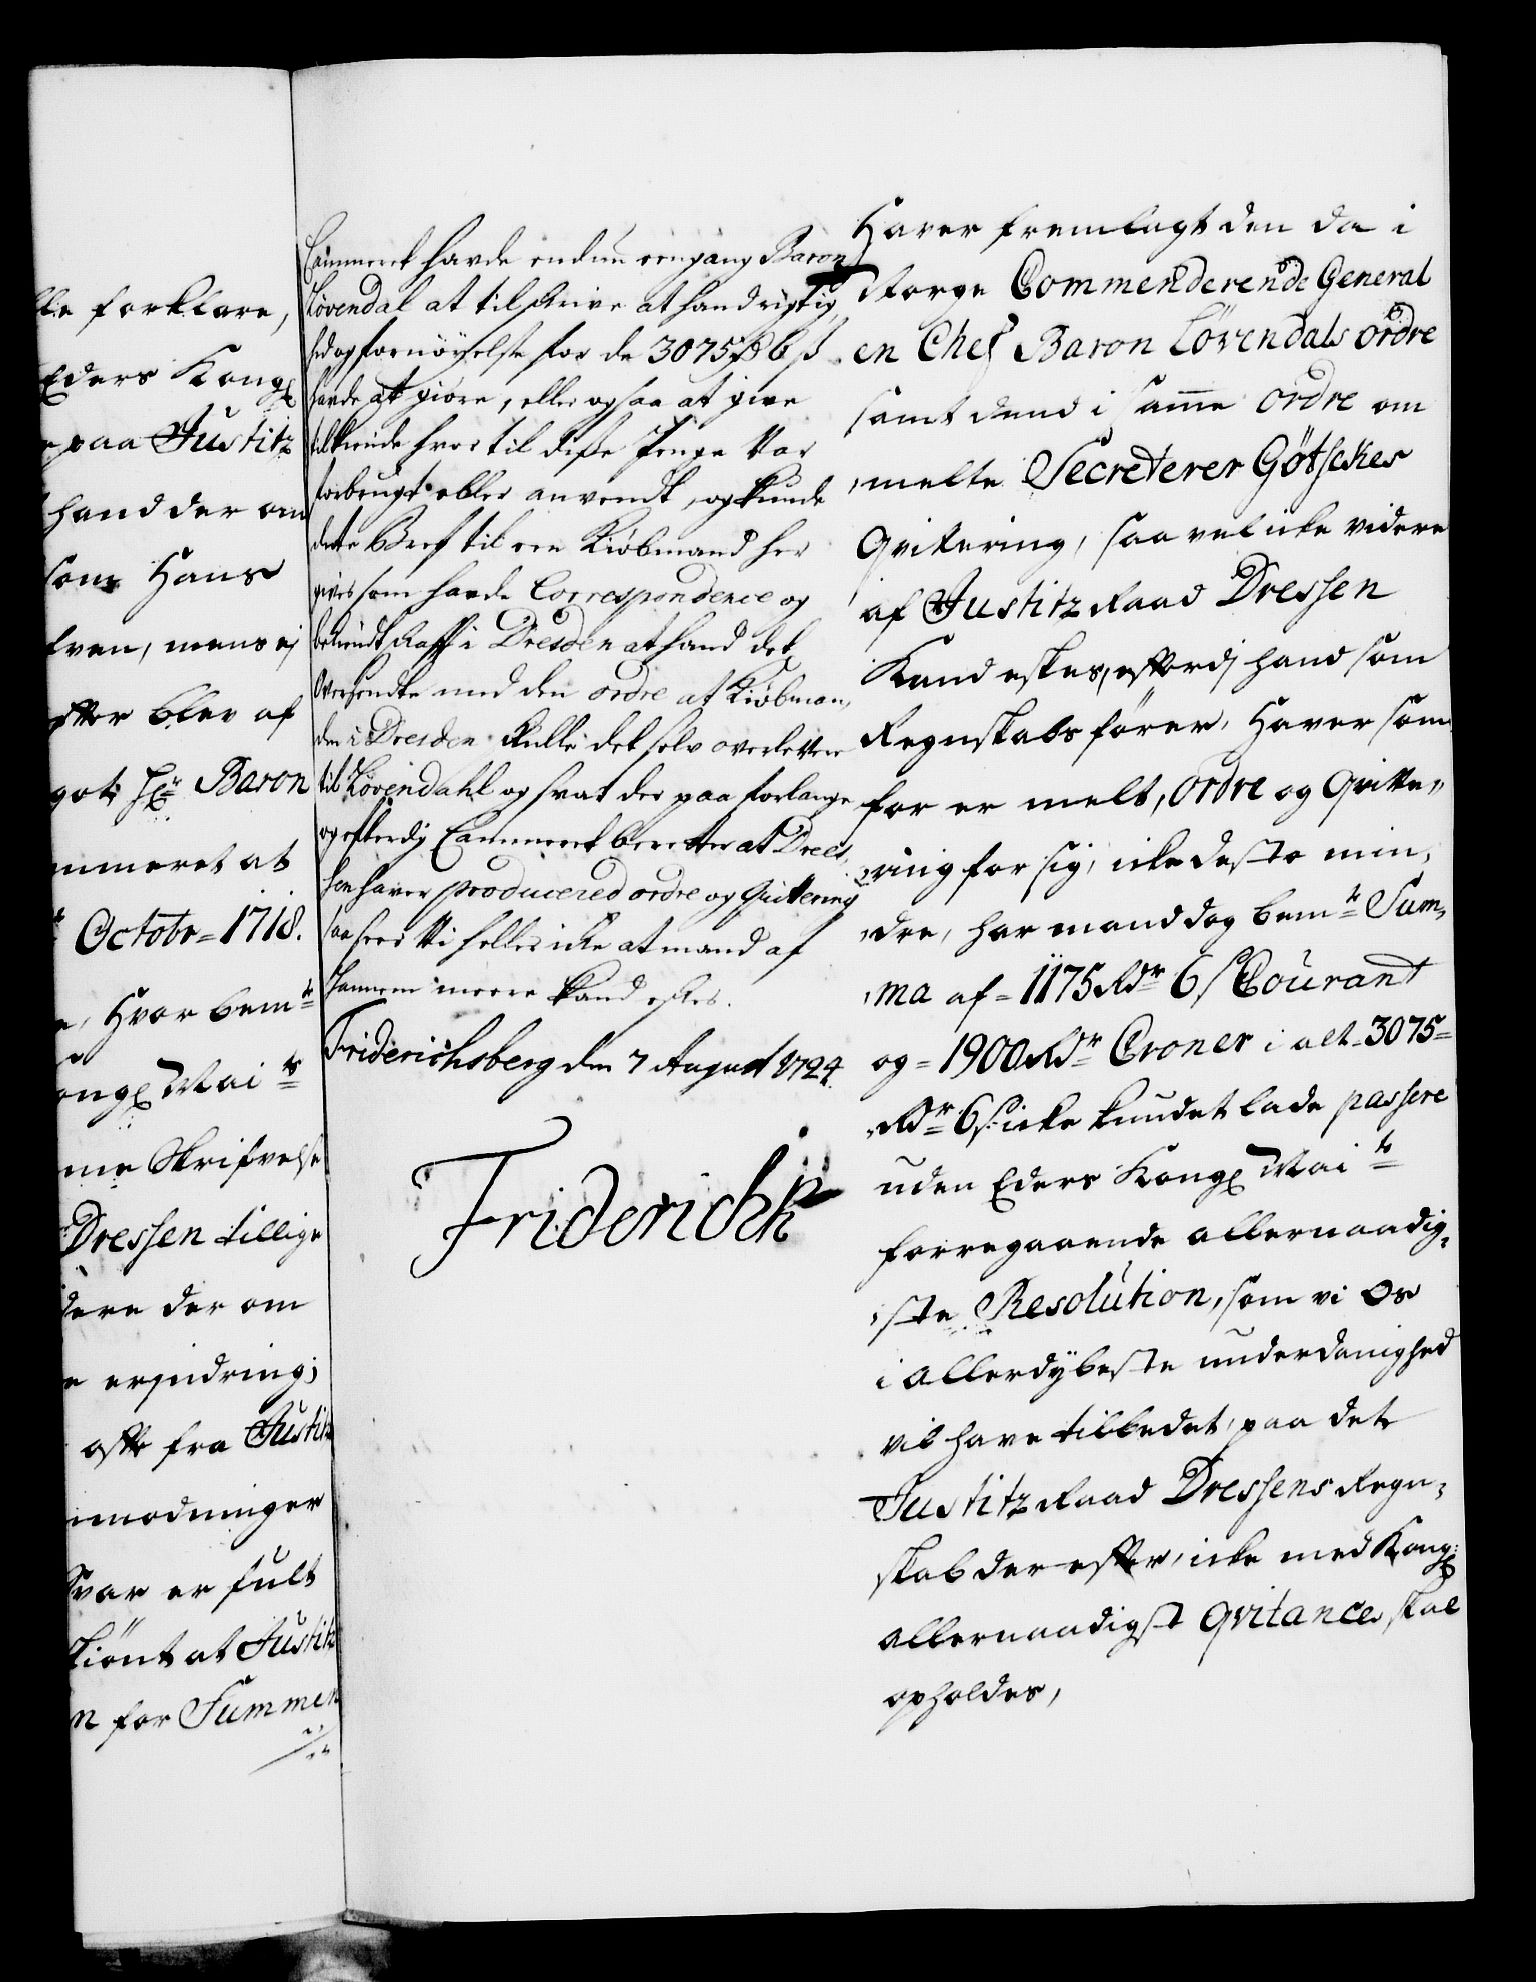 lle forklare,
Eders Kongl
paa Justitz
hand der om
som Hans
ej
efter blev af
got hr Baron
ammeret at
Octobr = 1718.
Hvor bemte
ongl Maits
me Skrifvelse
Dressen tillige
dere der om
e erindring;
offte fra Justitz
modninger
Svar er fult
skiönt at Justitz
n for Summen
Cammeret havde endnu eengang Baron
Løvendal at tilskrive at hand rigtig
hed og fornøyelse for de 3075 Rd 6 s
havde at giøre, eller ogsaa at give
tilkiende hvor til disse Penge var
forbrugt eller anvendt, og kunde
dette Bref til een Kiøbmand her
gives som havde Correspondence og
bekiendtskaff i Dresden at hand det
oversendte med den ordre at Kiøbman,
den i Dresden skulle det selv overlevere
til Løvendahl og svar der paa forlange
og efterdj Cammeret beretter at Dres,
sen haver produceret ordre og Quittering
saa seer Vi heller icke at mand af
hannem meere kand eskes.
Friderichsberg den 7 August 1724.
Friderich R
Haver fremlagt den da i
Norge Commenderende General
en Chef Baron Lövendals ordre
samt dend i samme ordre om
,melte Secreterer Götsches
Qvittering, saa vel icke videre
af Justitz Raad Dressen
Kand eskes, efterdj hand som
Regnskabs fører, Haver som
for er melt, ordre og Qvitte,,
,,ring for sig, icke desto min,
,dre, har mand dog bemte Sum,
,ma af = 1175 Rdr 6 s Courant
og = 1900 Rdr Croner i alt = 3075 =
,Rdr 6 s: icke kundet lade passere
uden Eders Kongl Maits
forregaaende allernaadig,
,ste Resolution, som vi Os
i allerdybeste underdanighed
vil have tilbedet, paa det
Justitz Raad Dressens Regn,
skab der efter, icke med Kongl:
allernaadigst Qvitance, skal
opholdes,